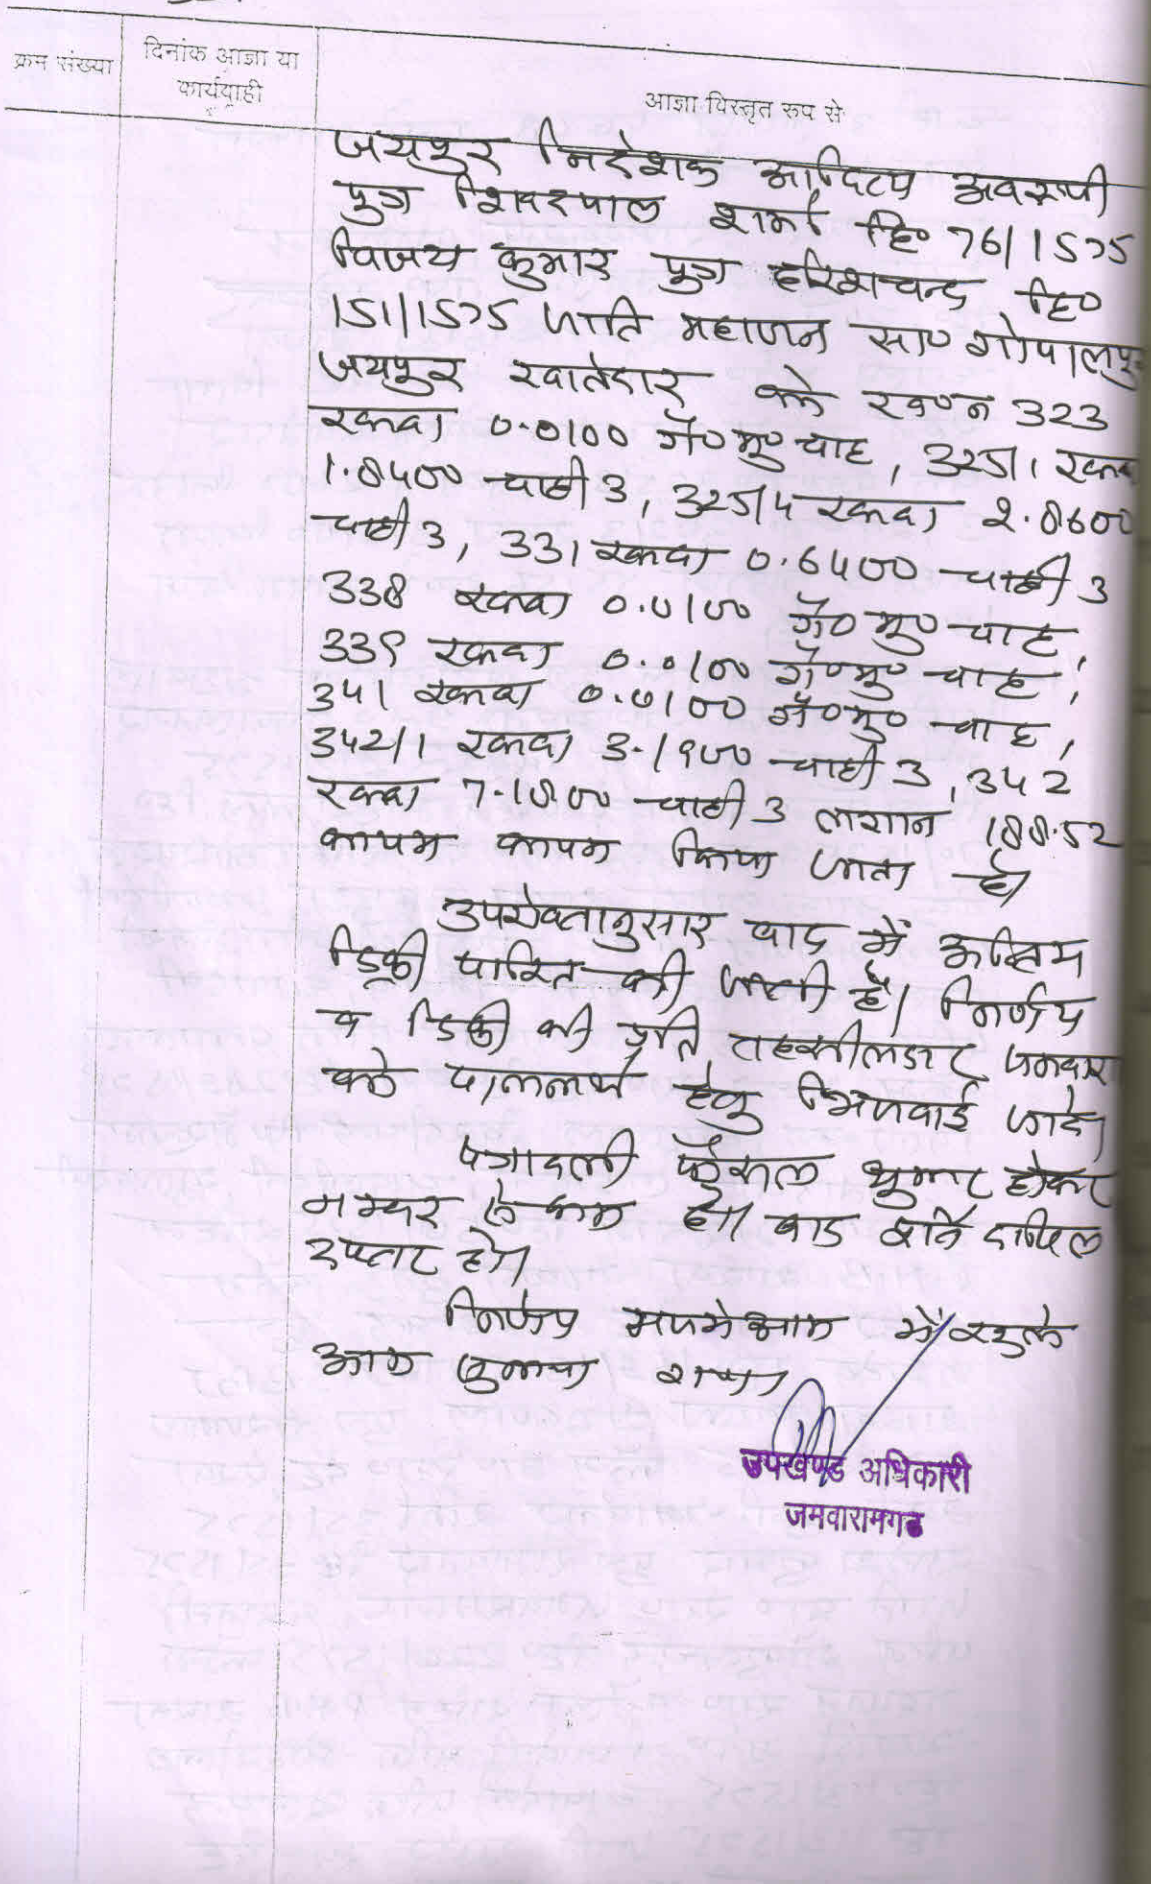 क्रम संख्या
दिनांक आज्ञा या
कार्यवाही
आज्ञा विस्तृत रूप से
जयपुर निदेशक आदित्य अवस्थी
पुत्र शिवदयाल शर्मा हि० 76/1575
विजय कुमार पुत्र हरिशचन्द्र हि०
151/1575 जाति महाजन सा० गोपालपुरा
जयपुर खातेदार के ख०न 323
रकबा 0.0100 गै०मु० चाह, 325/1 रकबा
1.8400 चाही 3, 325/4 रकबा 2.8600
चाही 3, 331 रकबा 0.6400 चाही 3
338 रकबा 0.0100 गै० मु० चाह,
339 रकबा 0.0100 गै०मु० चाह,
341 रकबा 0.0100 गै०मु० चाह,
342/1 रकबा 3.1900 चाही 3, 342
रकबा 7.1800 चाही 3 लगान 188.52
कायम कायम किया जाता है।
उपरोक्तानुसार वाद में अन्तिम
डिक्री पारित की जाती है। निर्णय
व डिक्री की प्रति तहसीलदार जमवारा
को पालनार्थ हेतु भिजवाई जावे।
पत्रावली फैसल शुमार होकर
नम्बर से कम हो। बाद शर्त दाखिल
दफ्तर हो।
निर्णय मजमेआम में खुले
आम सुनाया गया।
उपखण्ड अधिकारी
जमवारामगढ